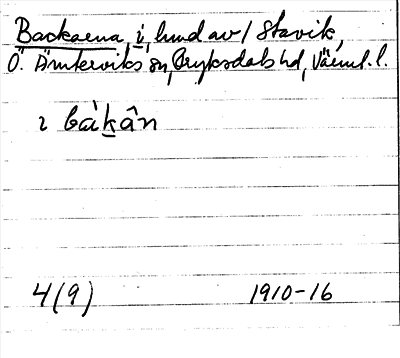 Backarna, i, lund av / Stavik,
Ö. Ämterviks sn, Fryksdals hd, Värml. l.
ı bàkân
4(9) 1910-16